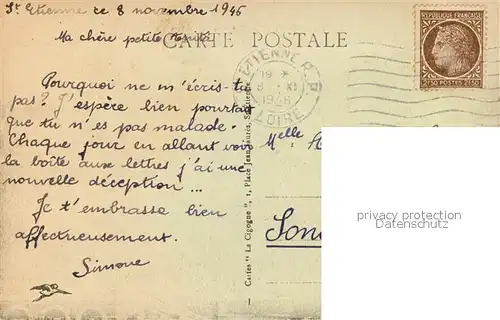 St Etienne ce 8 novembre 1946
CARTE POSTALE
Ma chère petite
Pourquoi ne m'écris-tu
pas? J'espère bien pourtant
que tu n'es pas malade.
Chaque jour en allant voir
la boîte aux lettres j'ai une
nouvelle déception...
Je t'embrasse bien
affectueusement.
Simone
Cartes "La Cigogne", 1, Place Jean-Jaurès, St-Etienne
REPUBLIQUE FRANÇAISE
2F50 POSTES 2F50
ETIENNE R.P
19 *
8 XI
1946
LOIRE
Melle
privacy protection
Datenschutz